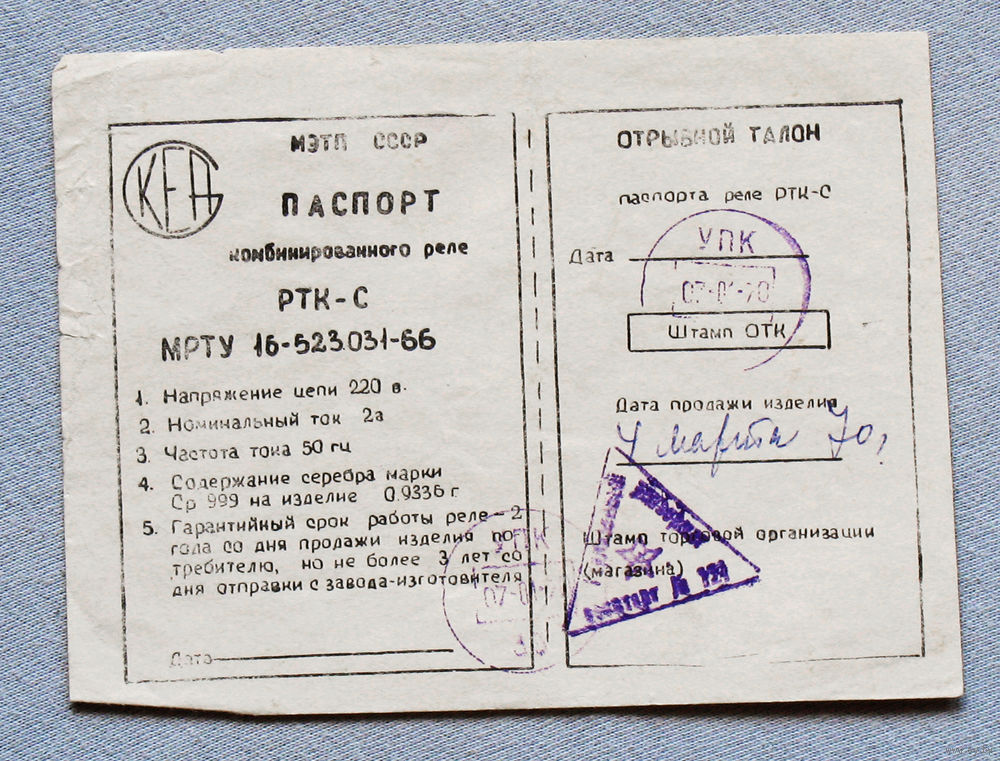 КЕА
МЭТП СССР
ПАСПОРТ
комбинированного реле
РТК-С
МРТУ 16-523.031-66
1. Напряжение цепи 220 в.
2. Номинальный ток 2а
3. Частота тока 50 гц
4. Содержание серебра марки
Ср 999 на изделие 0.9336 г
5. Гарантийный срок работы реле-2
года со дня продажи изделия по-
требителю, но не более 3 лет со
дня отправки с завода-изготовителя
Дата
УПК
07-0
ОТРЫВНОЙ ТАЛОН
паспорта реле РТК-С
УПК
Дата
07-01-70
Штамп ОТК
Дата продажи изделия
4 марта 70,
Штамп торговой организации
(магазина)